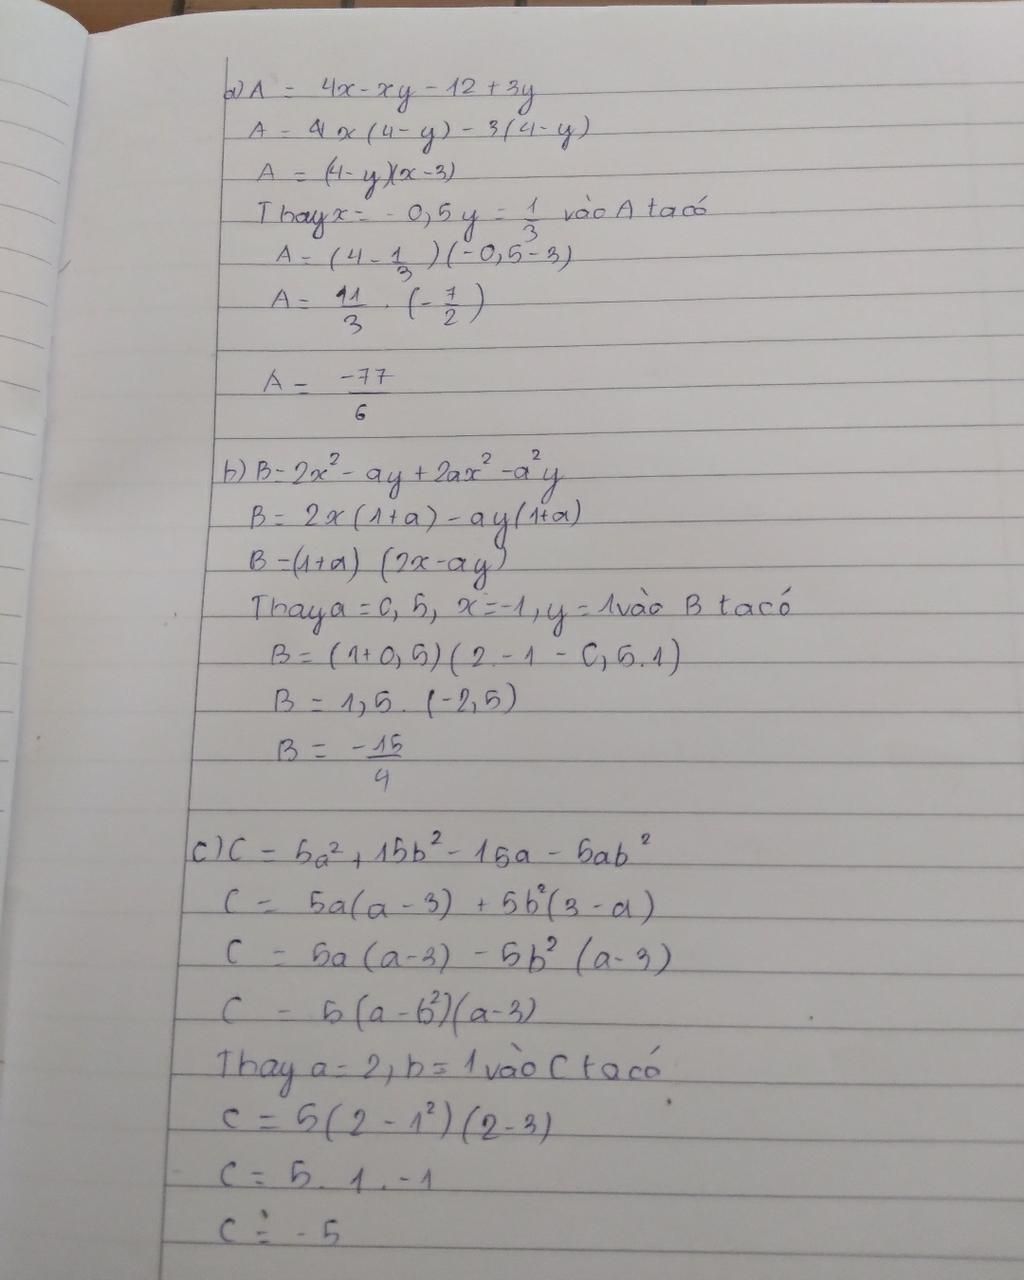 a) A = 4x - xy - 12 + 3y
A = x(4 - y) - 3(4 - y)
A = (4 - y)(x - 3)
Thay x = - 0,5 y = 1/3 vào A ta có
A = (4 - 1/3)(-0,5 - 3)
A = 11/3 . (-7/2)
A = -77/6
b) B = 2x² - ay + 2ax² - a²y
B = 2x(1+a) - ay(1+a)
B = (1+a) (2x - ay)
Thay a = 0,5, x = -1, y = 1 vào B ta có
B = (1+0,5)(2.-1 - 0,5.1)
B = 1,5. (-2,5)
B = -15/4
c) C = 5a² + 15b² - 15a - 5ab²
C = 5a(a - 3) + 5b²(3 - a)
C = 5a(a - 3) - 5b² (a - 3)
C = 5(a - b²)(a - 3)
Thay a = 2, b = 1 vào C ta có
C = 5(2 - 1²)(2 - 3)
C = 5 . 1 . -1
C = - 5